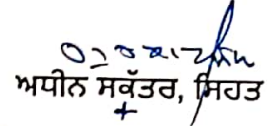 ਅਧੀਨ ਸਕੱਤਰ, ਸਿਹਤ